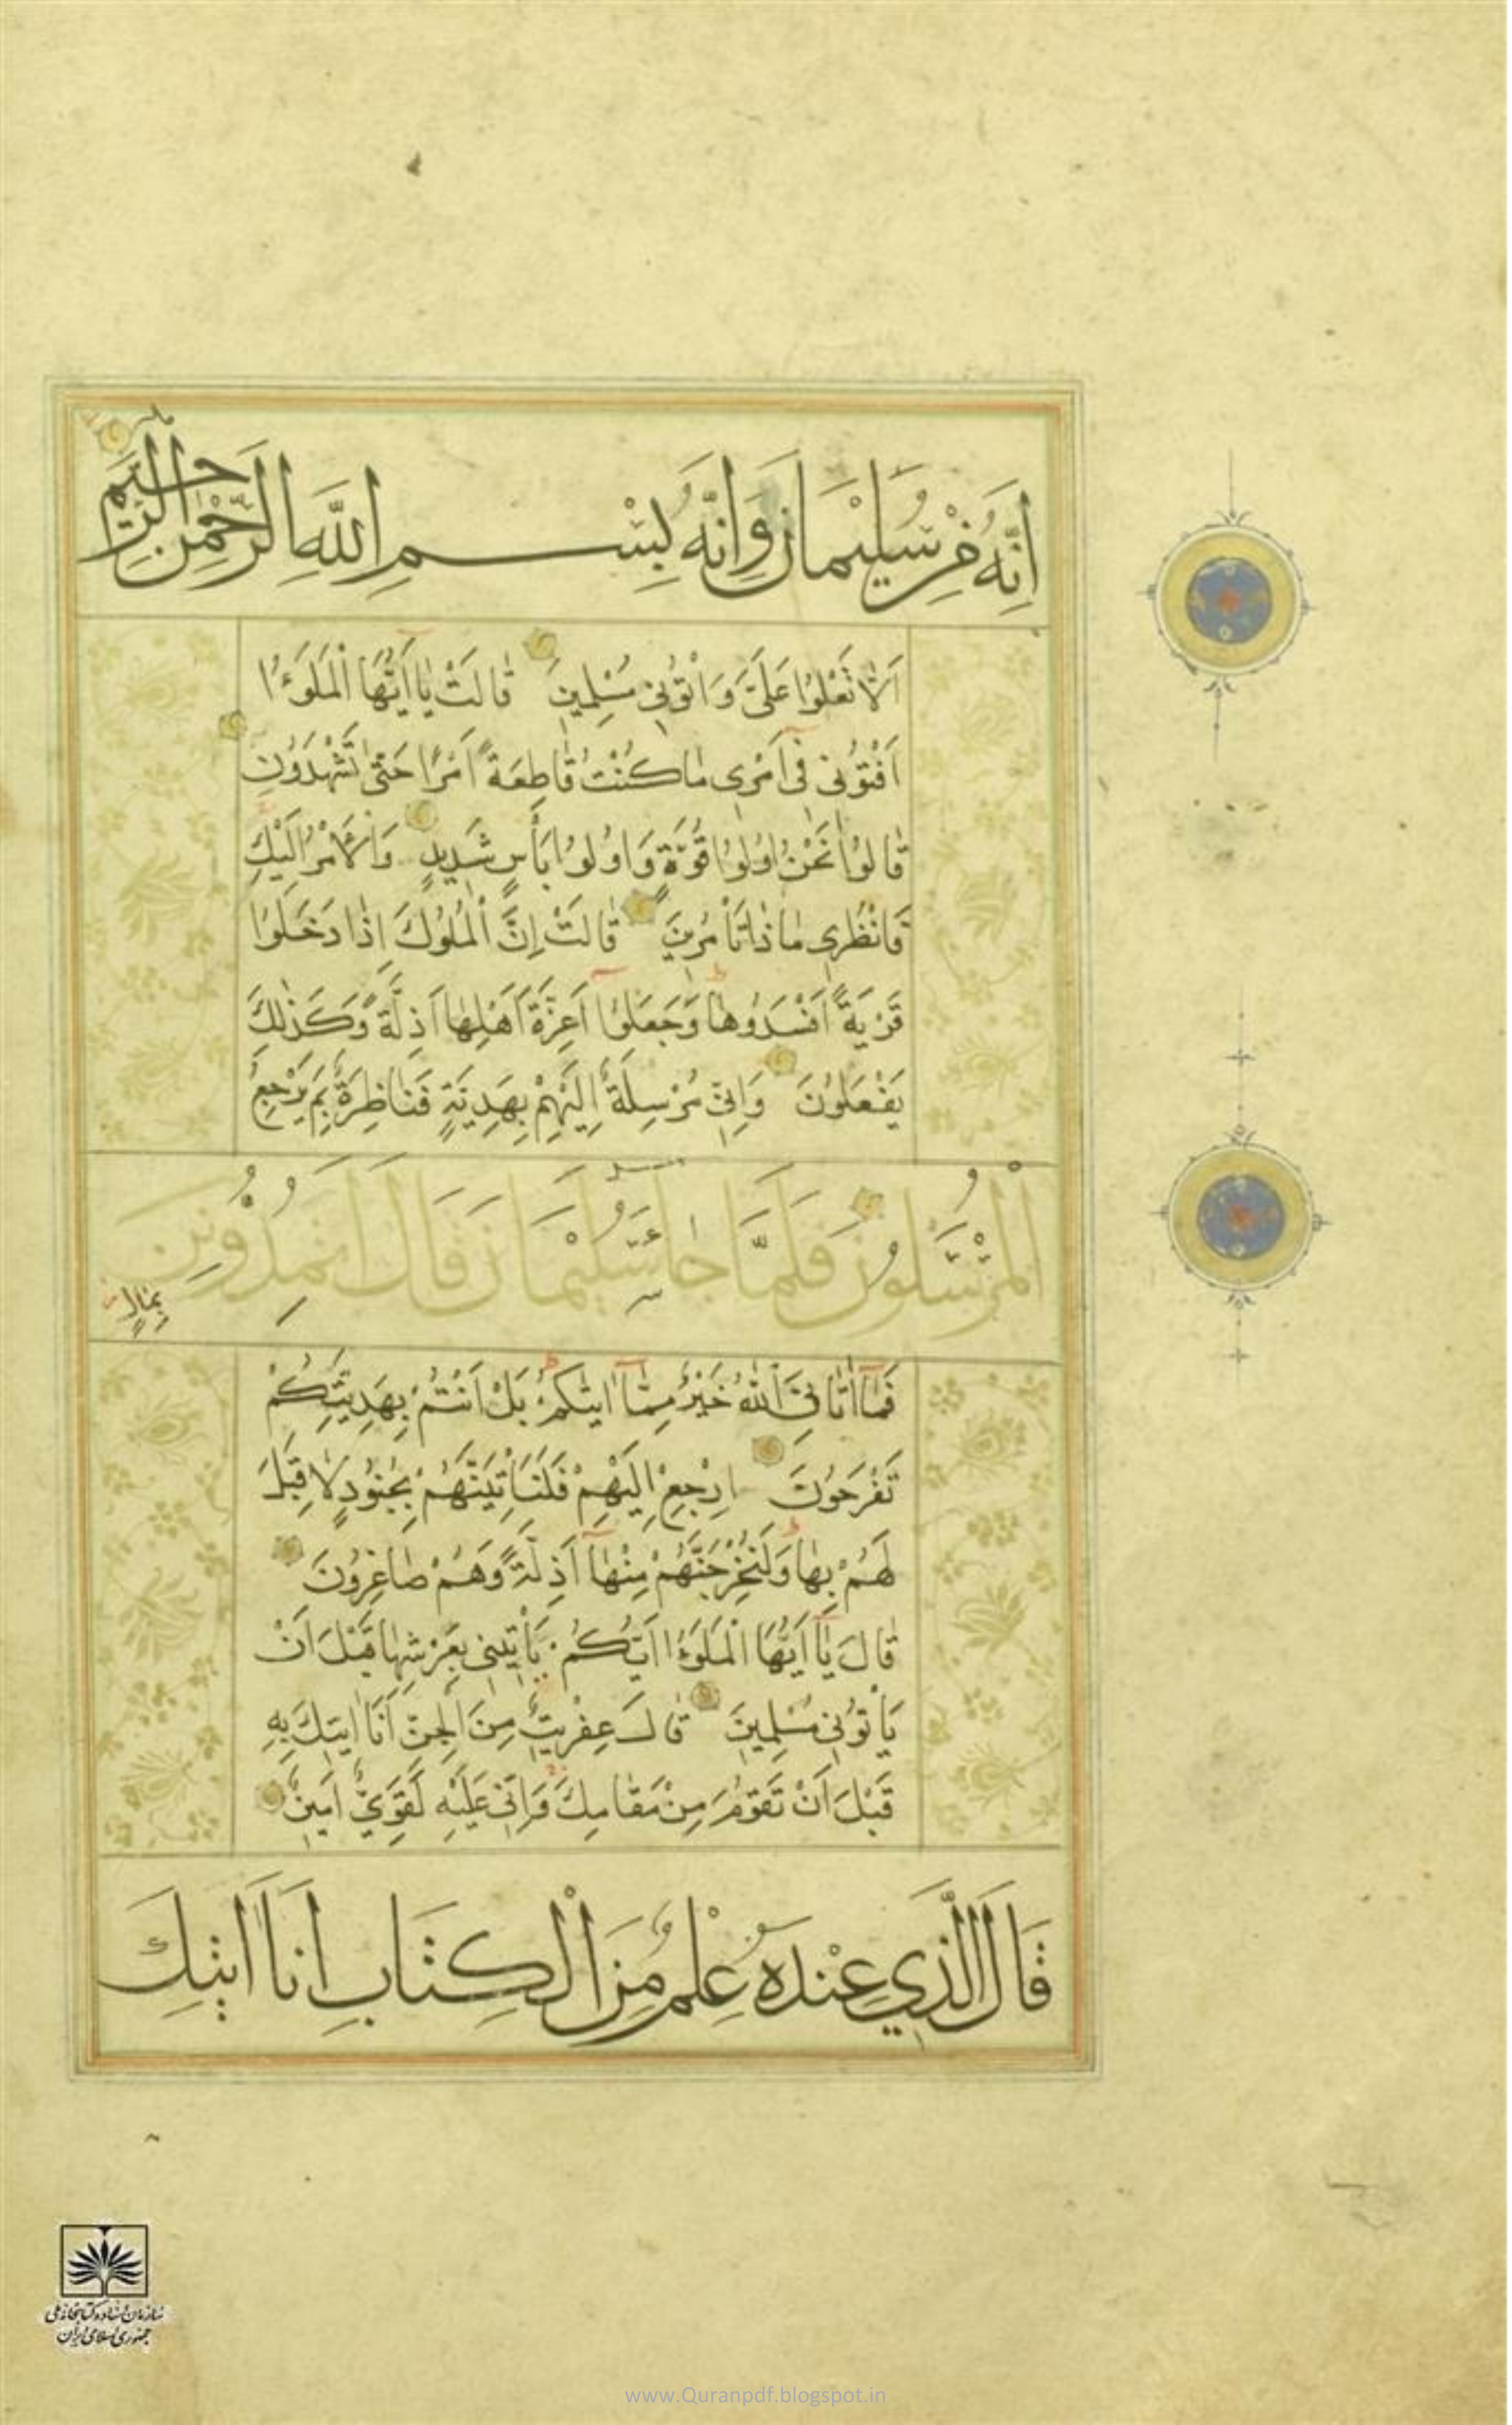 اِنَّهُ مِنْ سُلَيْمَانَ وَاِنَّهُ بِسْمِ اللَّهِ الرَّحْمٰنِ الرَّحِيمِ
اَلَّا تَعْلُوا عَلَيَّ وَاْتُونِي مُسْلِمِينَ قَالَتْ يَا اَيُّهَا الْمَلَؤُا
اَفْتُونِي فِي اَمْرِي مَا كُنْتُ قَاطِعَةً اَمْرًا حَتَّى تَشْهَدُونِ
قَالُوا نَحْنُ اُولُوا قُوَّةٍ وَاُولُوا بَأْسٍ شَدِيدٍ وَالْاَمْرُ اِلَيْكِ
فَانْظُرِي مَاذَا تَأْمُرِينَ قَالَتْ اِنَّ الْمُلُوكَ اِذَا دَخَلُوا
قَرْيَةً اَفْسَدُوهَا وَجَعَلُوا اَعِزَّةَ اَهْلِهَا اَذِلَّةً وَكَذٰلِكَ
يَفْعَلُونَ وَاِنِّي مُرْسِلَةٌ اِلَيْهِمْ بِهَدِيَّةٍ فَنَاظِرَةٌ بِمَ يَرْجِعُ
الْمُرْسَلُونَ فَلَمَّا جَاءَ سُلَيْمَانَ قَالَ اَتُمِدُّونَنِ
بِمَالٍ
فَمَا اٰتَانِيَ اللّٰهُ خَيْرٌ مِمَّا اٰتٰيكُمْ بَلْ اَنْتُمْ بِهَدِيَّتِكُمْ
تَفْرَحُونَ اِرْجِعْ اِلَيْهِمْ فَلَنَأْتِيَنَّهُمْ بِجُنُودٍ لَا قِبَلَ
لَهُمْ بِهَا وَلَنُخْرِجَنَّهُمْ مِنْهَا اَذِلَّةً وَهُمْ صَاغِرُونَ
قَالَ يَا اَيُّهَا الْمَلَؤُا اَيُّكُمْ يَأْتِينِي بِعَرْشِهَا قَبْلَ اَنْ
يَأْتُونِي مُسْلِمِينَ قَالَ عِفْرِيتٌ مِنَ الْجِنِّ اَنَا اٰتِيكَ بِهِ
قَبْلَ اَنْ تَقُومَ مِنْ مَقَامِكَ وَاِنِّي عَلَيْهِ لَقَوِيٌّ اَمِينٌ
قَالَ الَّذِي عِنْدَهُ عِلْمٌ مِنَ الْكِتَابِ اَنَا اٰتِيكَ
سازمان اسناد و کتابخانه ملی
جمهوری اسلامی ایران
www.Quranpdf.blogspot.in